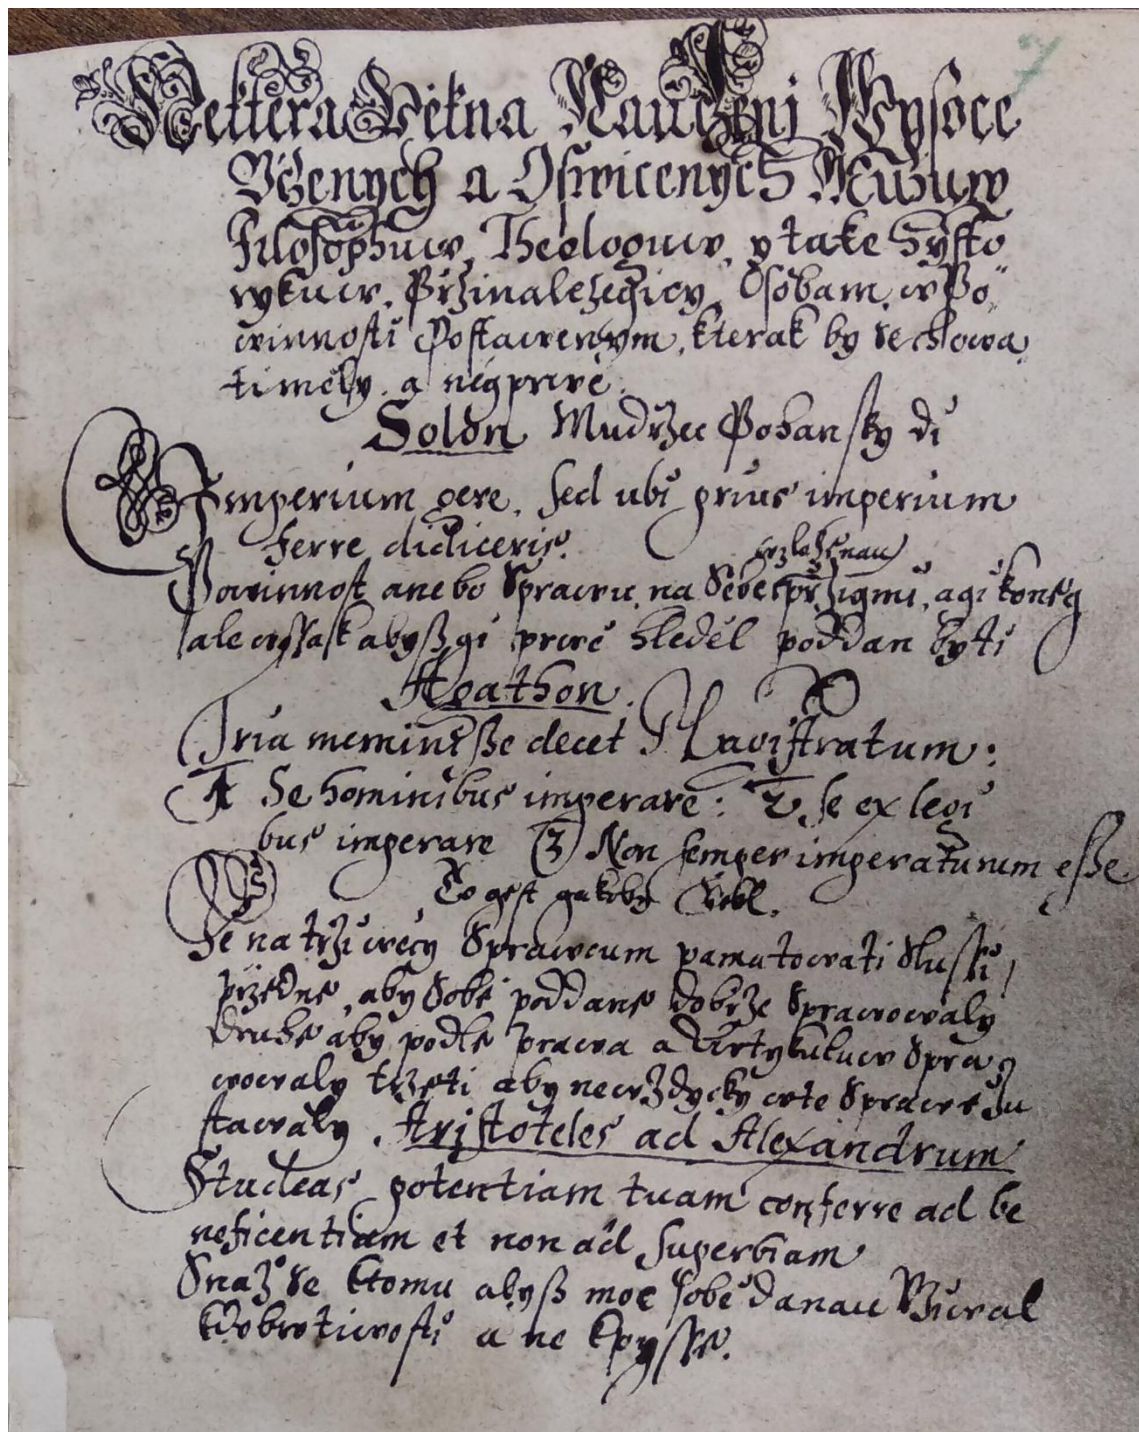 Nektera Pěkna Naučženj Wysoce
Včženych a Oswicenych Mužuw
Filosophuw, Theologuw, y take Hysto
rykuw, Přžinaležegicy, Osobam, w Po
winnosti Postawenym, kterak by se chowa
ti měly, a neyprwé.
Solon Mudržec Pohansky di
Imperium gere, sed ubi prius imperium
Ferre didiceris.
wzloženau
Powinnost anebo Sprawu, na Sebe přžigmi, a gi koneg
ale wssak abyß gi prwé hleděl poddan byti
Agathon.
Tria meminiße decet Magistratum:
1 Se hominibus imperare: 2 Se ex legi
bus imperare (3) Non semper imperaturum eße
To gest gakoby Řekl.
Že na trži wěcy Sprawcum pamatowati Slussi,
pržedne, aby Sobě poddane dobrže Sprawowaly
Druhe aby podle prawa a Artykuluw Spra
wowaly tržeti aby ne wždycky w te Sprawě zu
stawaly. Aristoteles ad Alexandrum
Studeas potentiam tuam conferre ad be
neficentiam et non ad Superbiam
Snaž Se k tomu abyß moc sobě danau Vžiwal
k dobrotiwosti a ne k peysse.